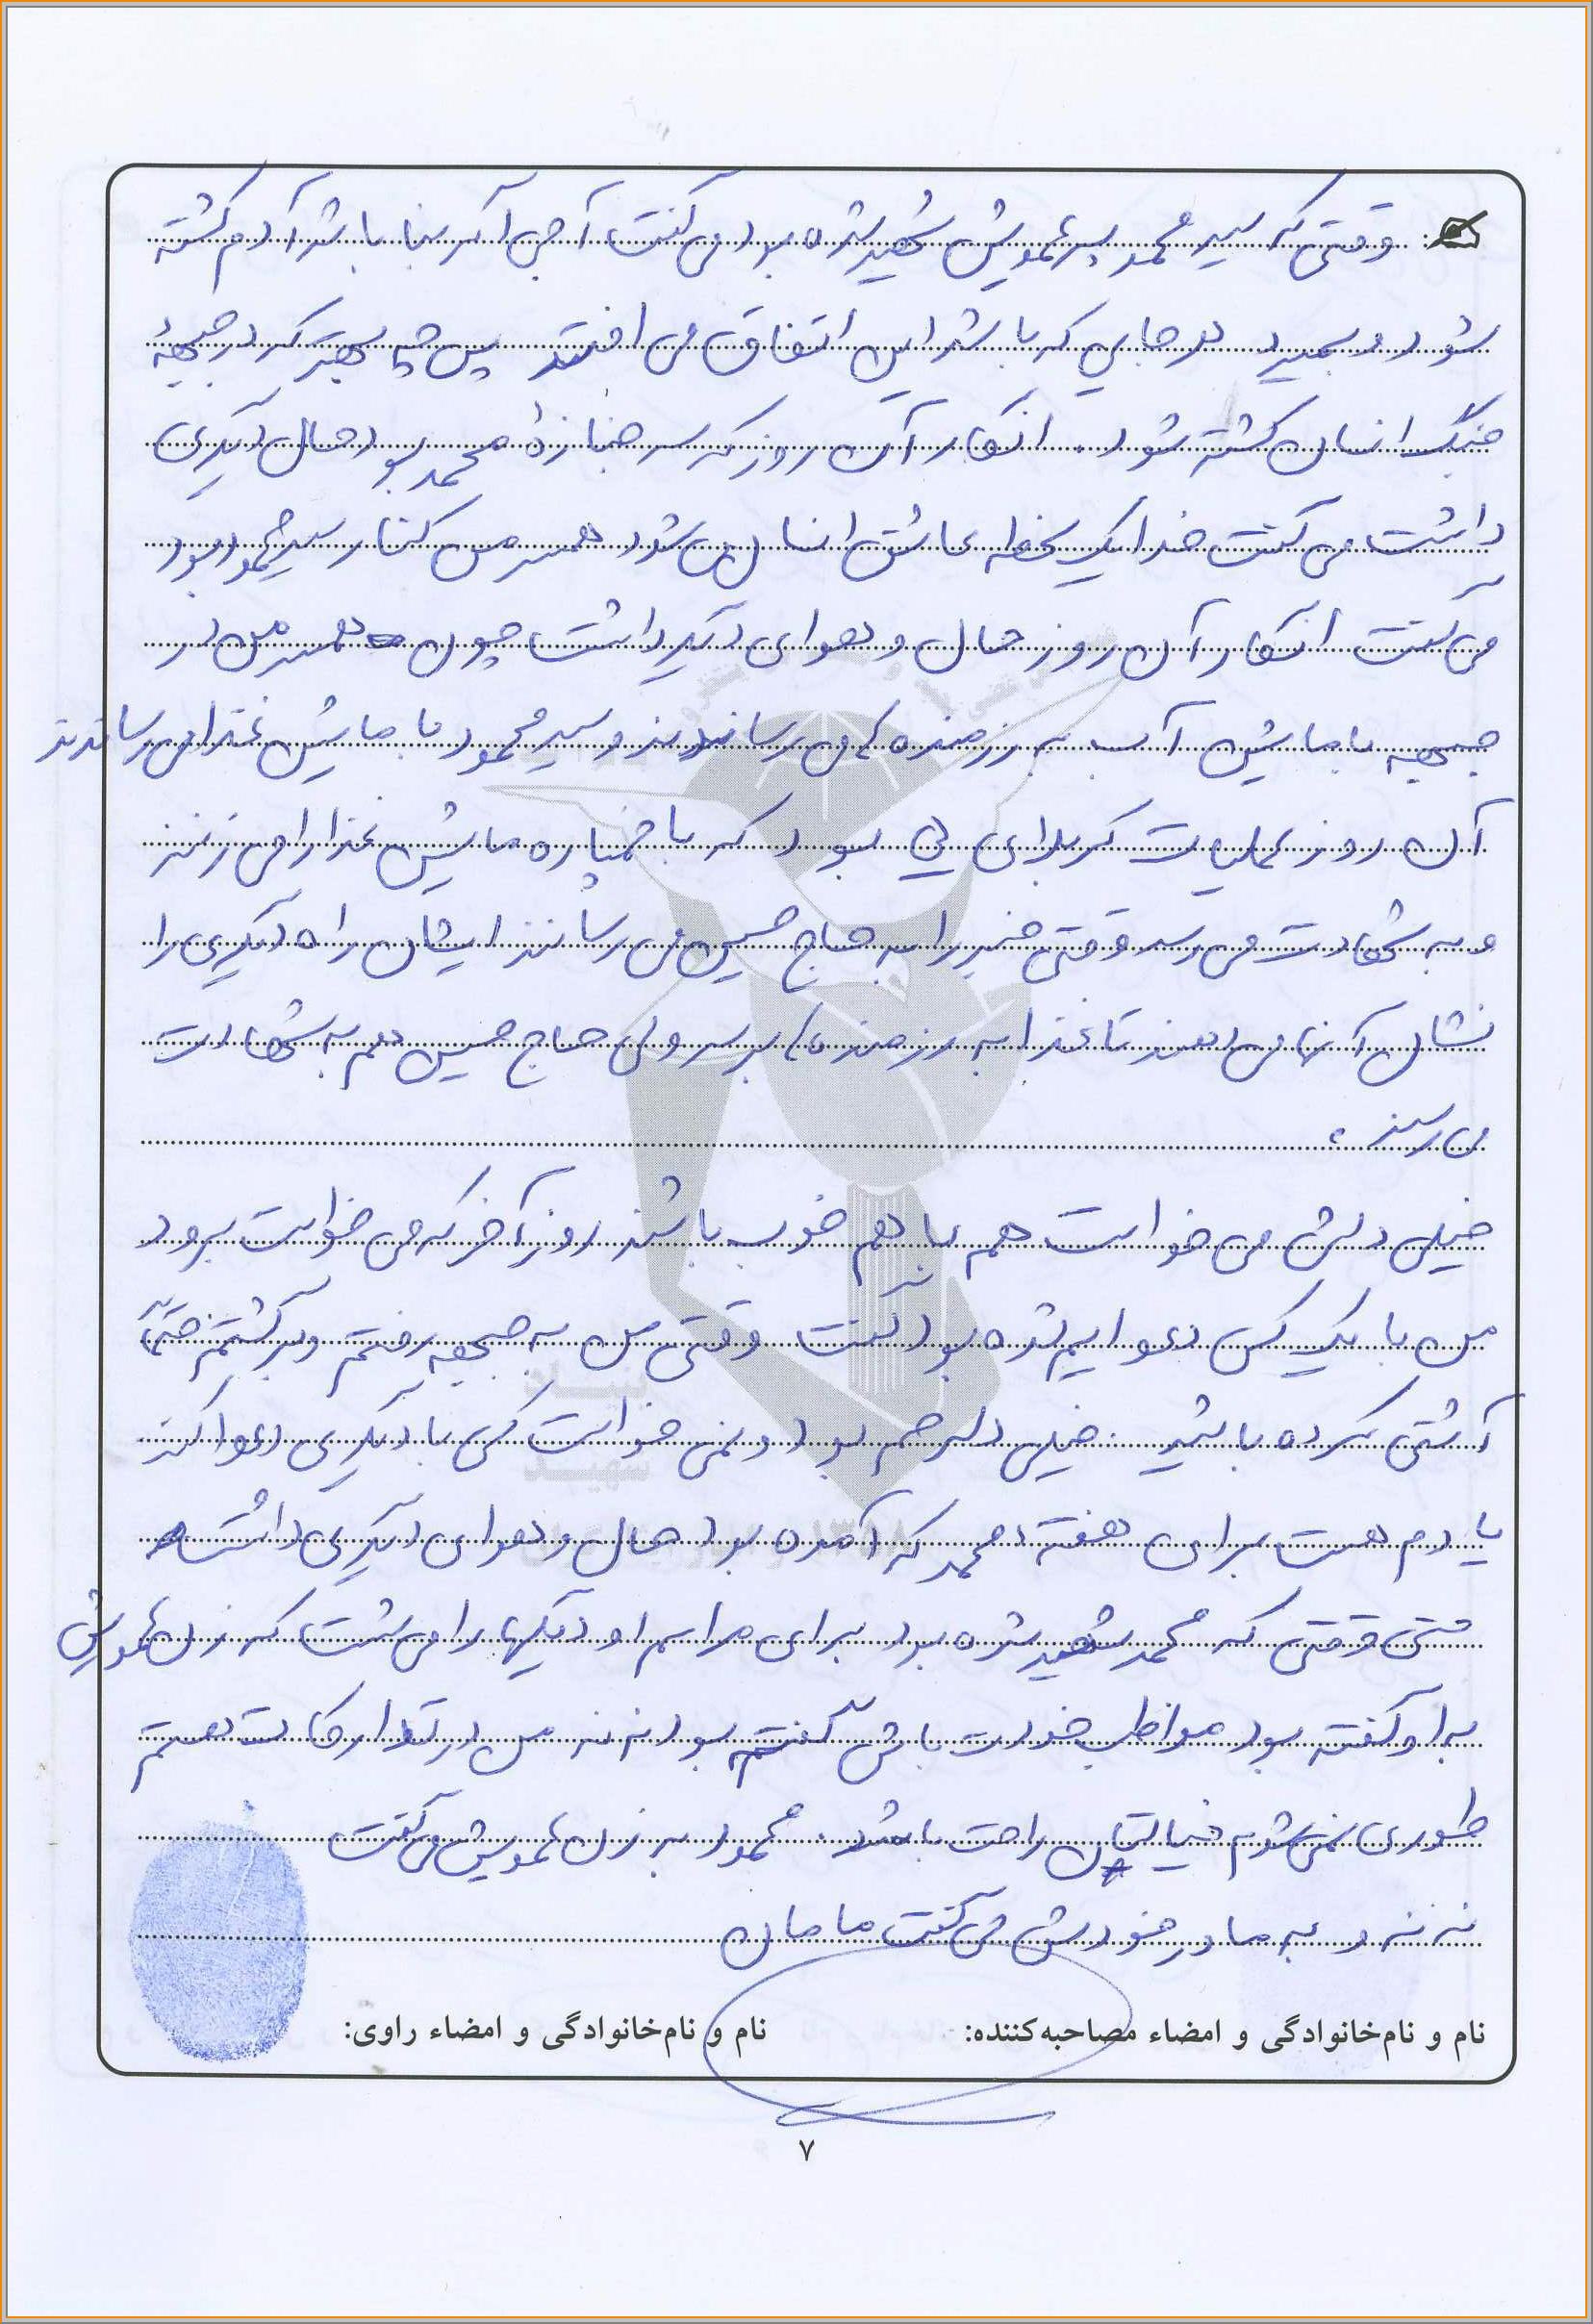 وقتی که سید محمود پسرعمویش شهید شده بود می گفت آجی اگر بنا باشد آدم کشته
شود و بمیرد هر جایی که باشد این اتفاق می افتد پس چه بهتر که در جبههٔ
جنگ انسان کشته شود. انگار آن روز که سر جنازهٔ محمد بود حال دیگری
داشت می گفت خدا یک لحظه عاشق انسان می شود همسر من کنار سید محمود بود
می گفت انگار آن روز حال و هوای دیگر داشت چون همسر من در
جبهه با ماشین آب به رزمنده ها می رساندند و سید محمود با ماشین غذا می رساندند
آن روز عملیات کربلای بود که با خمپاره ماشین غذا را می زنند
و به شهادت می رسد وقتی خبر را به حاج حسین می رسانند ایشان راه دیگری را
نشان آنها می دهند تا غذا به رزمنده ها برسد ولی حاج حسین هم به شهادت
می رسند.
خیلی دلش می خواست همه با هم خوب باشند روز آخر که می خواست برود
من با یک کس دعوایم شده بود گفت وقتی من به جبهه رفتم و برگشتم حتماً
آشتی کرده باشید. خیلی دلرحم بود و نمی خواست کسی با دیگری دعوا کند
یادم هست برای هفته محمد که آمده بود حال و هوای دیگری داشت
حتی وقتی که محمد شهید شده بود برای مراسم او دیگها را می شست که زن عمویش
به او گفته بود مواظب خودت باش گفته بود نه نه من در تدارکات هستم
طوری نمی شوم خیالتان راحت باشد. محمود به زن عمویش می گفت
نه نه و به مادر خودش می گفت مامان
نام و نام‌خانوادگی و امضاء مصاحبه‌کننده: نام و نام‌خانوادگی و امضاء راوی:
۷